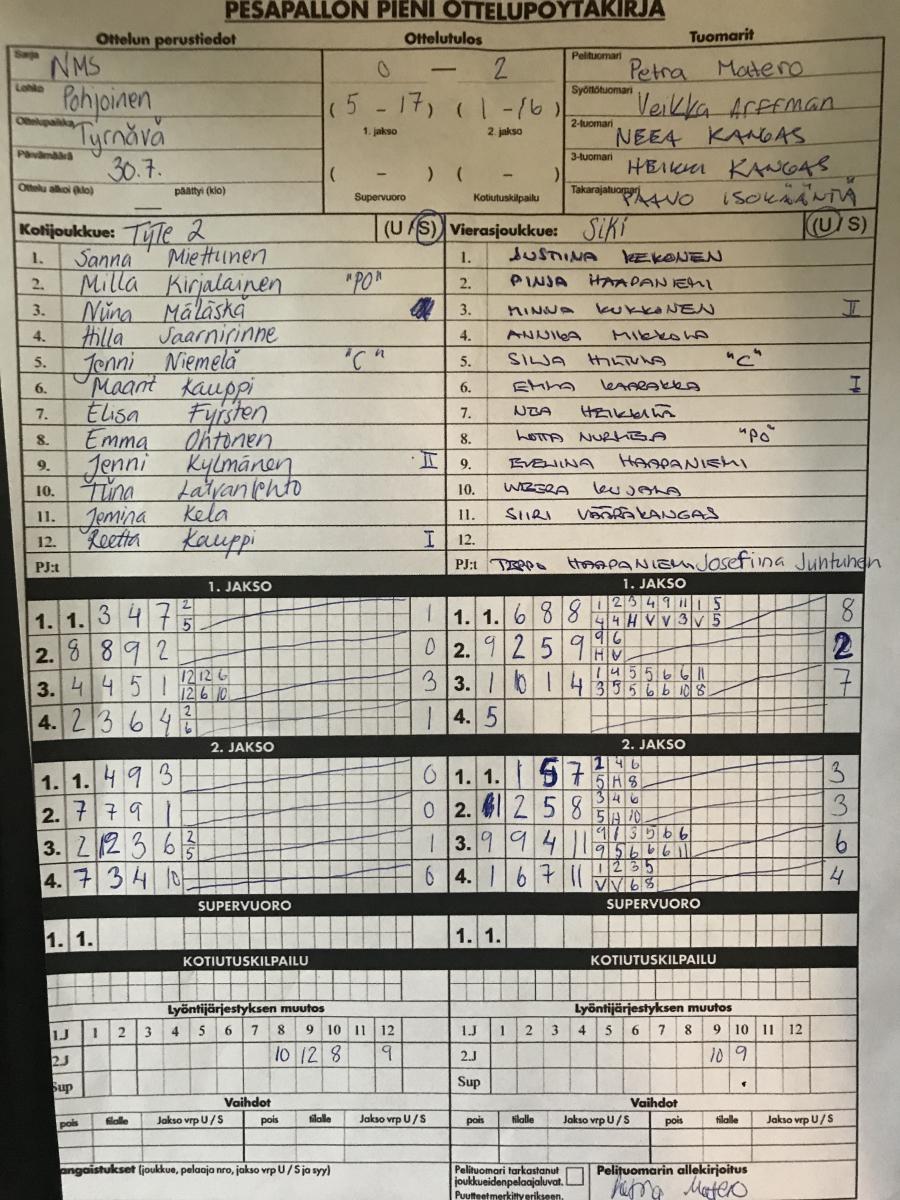 PESÄPALLON PIENI OTTELUPÖYTÄKIRJA
Ottelun perustiedot Ottelutulos Tuomarit
Sarja NMS 0 — 2 Pelituomari Petra Matero
Lohko Pohjoinen (5 - 17) (1 - 16) Syöttötuomari Veikka Arffman
Ottelupaikka Tyrnävä 1. jakso 2. jakso 2-tuomari NEEA KANGAS
Päivämäärä 30.7. ( - ) ( - ) 3-tuomari HEIKKI KANGAS
Ottelu alkoi (klo) — päättyi (klo) Supervuoro Kotiutuskilpailu Takarajatuomari PAAVO ISOKÄÄNTÄ
Kotijoukkue: TyTe 2 (U / S) Vierasjoukkue: SiKi (U / S)
1. Sanna Miettunen 1. JUSTIINA KEKONEN
2. Milla Kirjalainen "PO" 2. PINJA HAAPANIEMI
3. Niina Mäläskä 3. MINNA KUKKONEN II
4. Hilla Saarnirinne 4. ANNIKA MIKKOLA
5. Jenni Niemelä "C" 5. SILJA HILTULA "C"
6. Maarit Kauppi 6. EMMA KAARAKKA I
7. Elisa Fyrsten 7. NEA HEIKKILÄ
8. Emma Ohtonen 8. LOTTA "PO"
9. Jenni Kylmänen II 9. EVELIINA HAAPANIEMI
10. Tiina Latvanlehto 10. WEERA KUJALA
11. Jemina Kela 11. SIIRI VÄÄRÄKANGAS
12. Reetta Kauppi I 12.
PJ:t PJ:t TEPPO HAAPANIEMI Josefiina Juntunen
1. JAKSO 1. JAKSO
1. 1. 3 4 7 2 1 1. 1. 6 8 8 1 2 3 4 9 11 1 5 8
5 4 4 H V V 3 V 5
2. 8 8 9 2 0 2. 9 2 5 9 9 6 2
H V
3. 4 4 5 1 12 12 6 3 3. 1 10 1 4 1 4 5 5 6 6 11 7
12 6 10 3 5 5 6 6 10 8
4. 2 3 6 4 2 1 4. 5
6
2. JAKSO 2. JAKSO
1. 1. 4 9 3 0 1. 1. 1 5 7 1 4 6 3
5 H 8
2. 7 7 9 1 0 2. 1 2 5 8 3 4 6 3
5 H 10
3. 2 12 3 6 2 1 3. 9 9 4 11 9 1 3 5 6 6 6
5 9 5 6 6 6 11
4. 7 3 4 10 0 4. 1 6 7 11 1 2 3 5 4
V V 6 8
SUPERVUORO SUPERVUORO
1. 1. 1. 1.
KOTIUTUSKILPAILU KOTIUTUSKILPAILU
Lyöntijärjestyksen muutos Lyöntijärjestyksen muutos
1.J 1 2 3 4 5 6 7 8 9 10 11 12 1.J 1 2 3 4 5 6 7 8 9 10 11 12
2.J 10 12 8 9 2.J 10 9
Sup Sup
Vaihdot Vaihdot
pois tilalle Jakso vrp U / S pois tilalle Jakso vrp U / S pois tilalle Jakso vrp U / S pois tilalle Jakso vrp U / S
angaistukset (joukkue, pelaaja nro, jakso vrp U / S ja syy) Pelituomari tarkastanut Pelituomarin allekirjoitus
joukkueiden pelaajaluvat. Petra Matero
Puutteet merkitty erikseen.